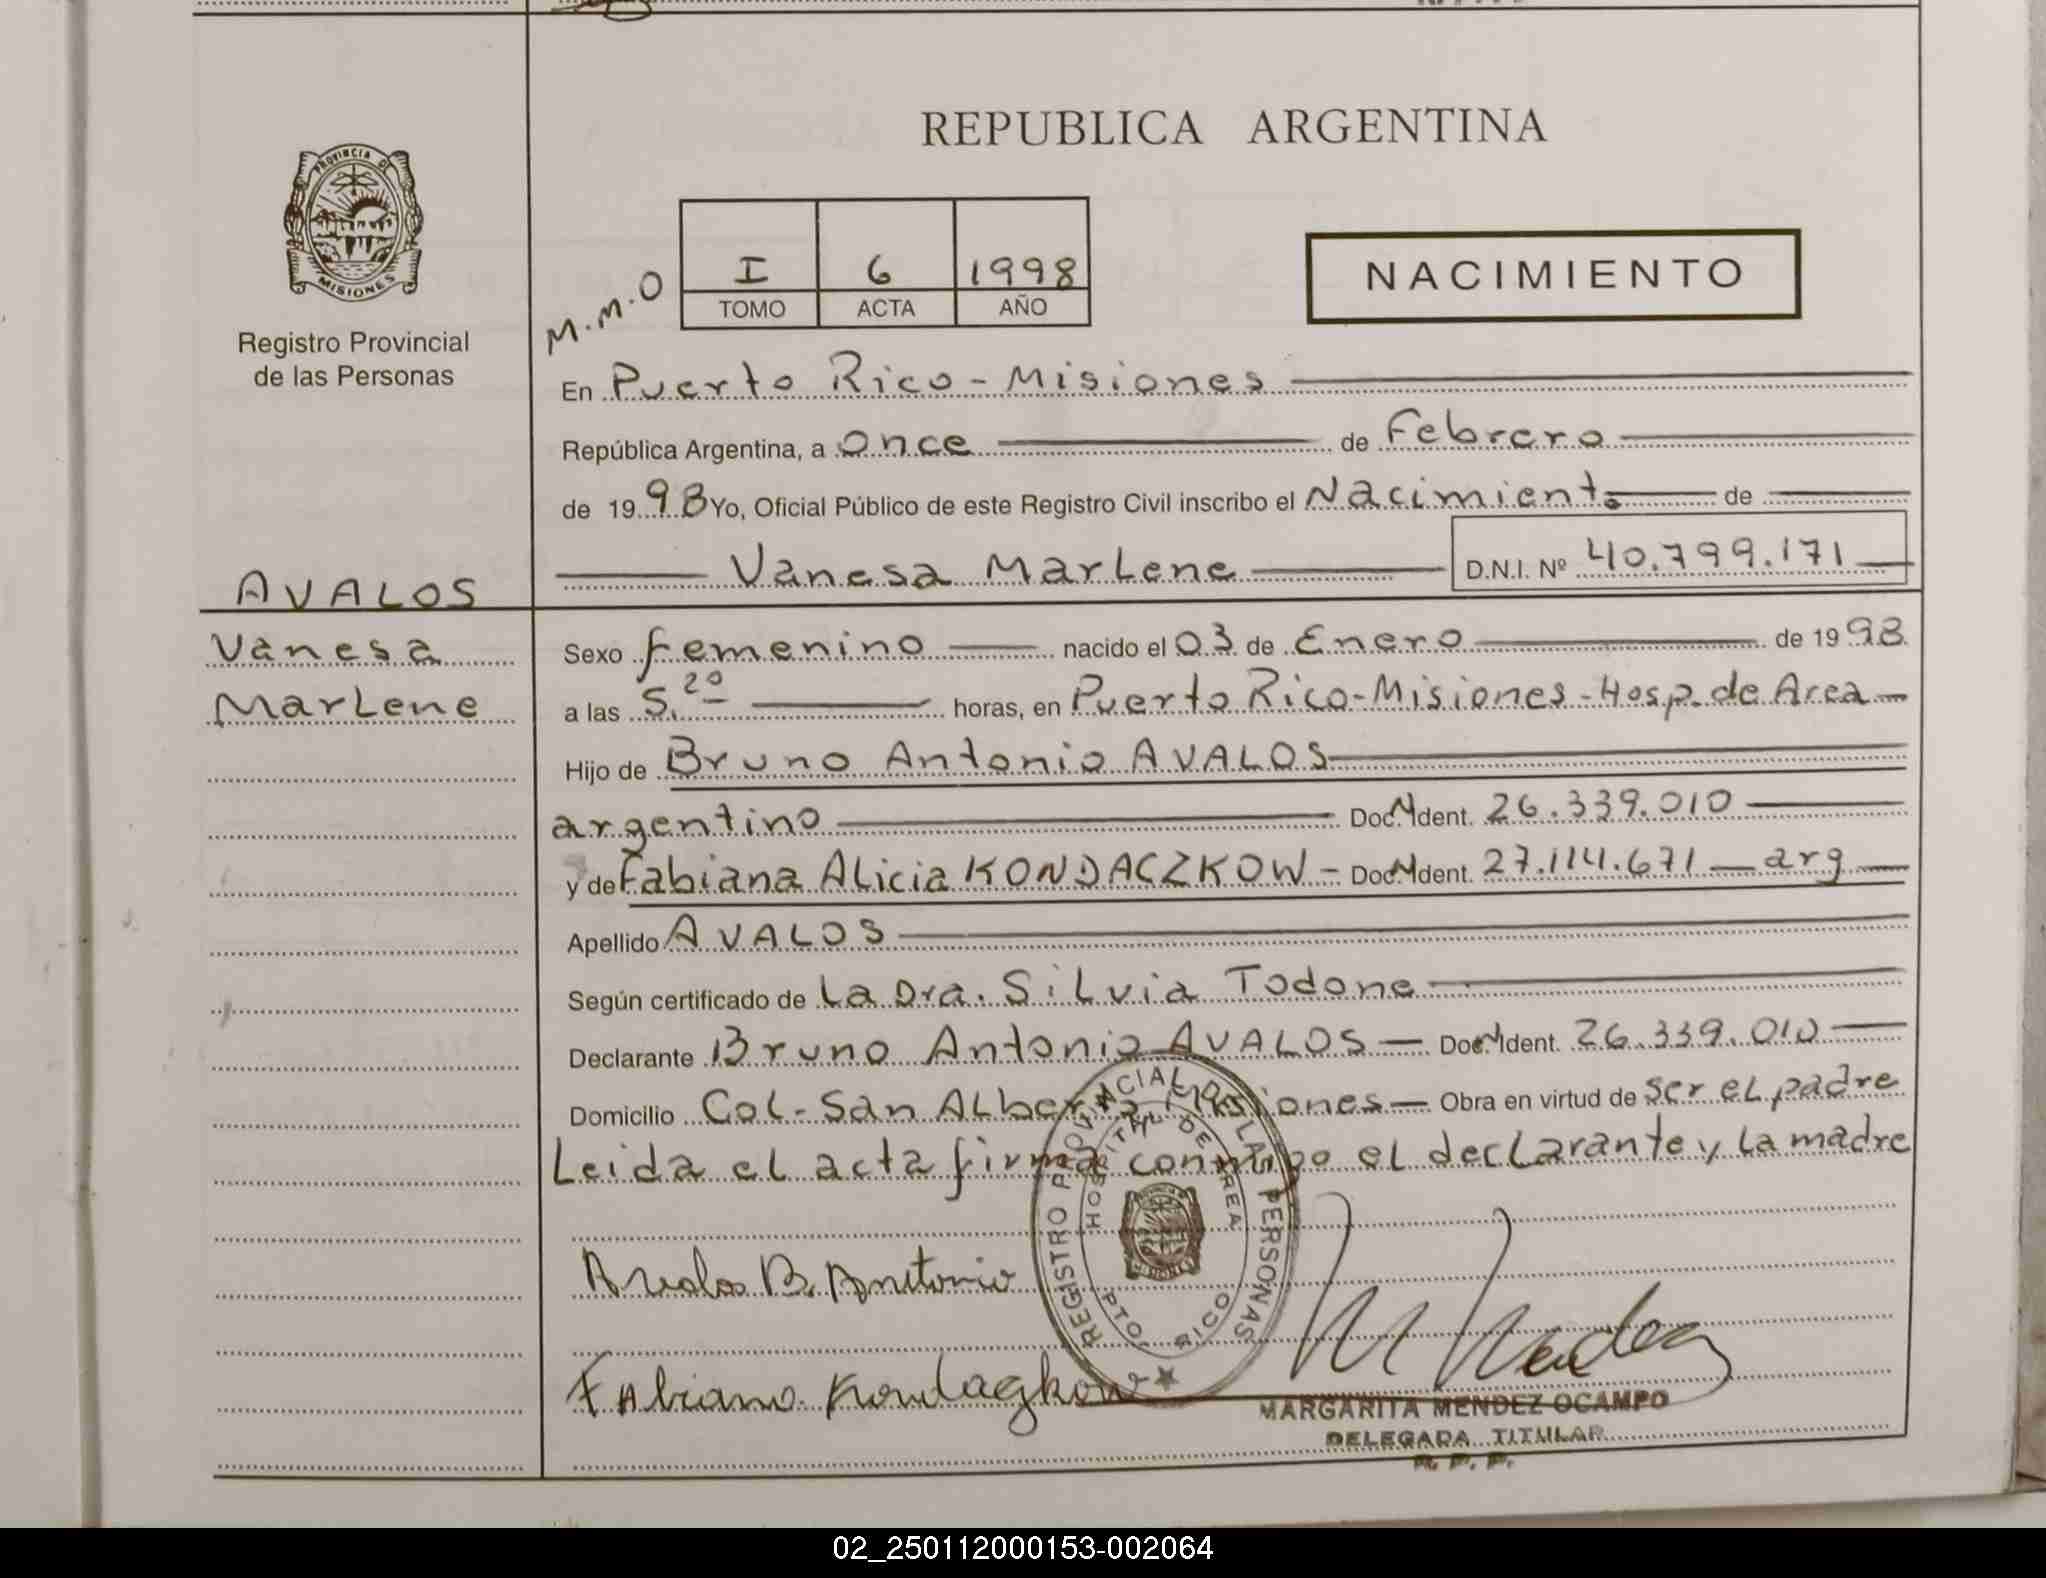 REPUBLICA ARGENTINA
PROVINCIA DE MISIONES
Registro Provincial
de las Personas
M.M.O
I 6 1998
TOMO ACTA AÑO
NACIMIENTO
En Puerto Rico - Misiones
República Argentina, a once de Febrero
de 1998 Yo, Oficial Público de este Registro Civil inscribo el Nacimiento de
Vanesa Marlene D.N.I. Nº 40.799.171
AVALOS
Vanesa
Marlene
Sexo femenino nacido el 03 de Enero de 1998
a las 5.20 horas, en Puerto Rico - Misiones - Hosp. de Area
Hijo de Bruno Antonio AVALOS
argentino Doc. N Ident. 26.339.010
y de Fabiana Alicia KONDACZKOW - Doc. N Ident. 27.114.671 - arg
Apellido AVALOS
Según certificado de La Dra. Silvia Todone
Declarante Bruno Antonio AVALOS - Doc. N Ident. 26.339.010
Domicilio Col - San Alberto Misiones - Obra en virtud de ser el padre
Leida el acta firma conmigo el declarante y la madre
REGISTRO PROVINCIAL DE LAS PERSONAS
HOSPITAL DE AREA
PTO. RICO
Avalos B. Antonio
Fabiana Kondagkow
MARGARITA MENDEZ OCAMPO
DELEGADA TITULAR
R. P. P.
02_250112000153-002064